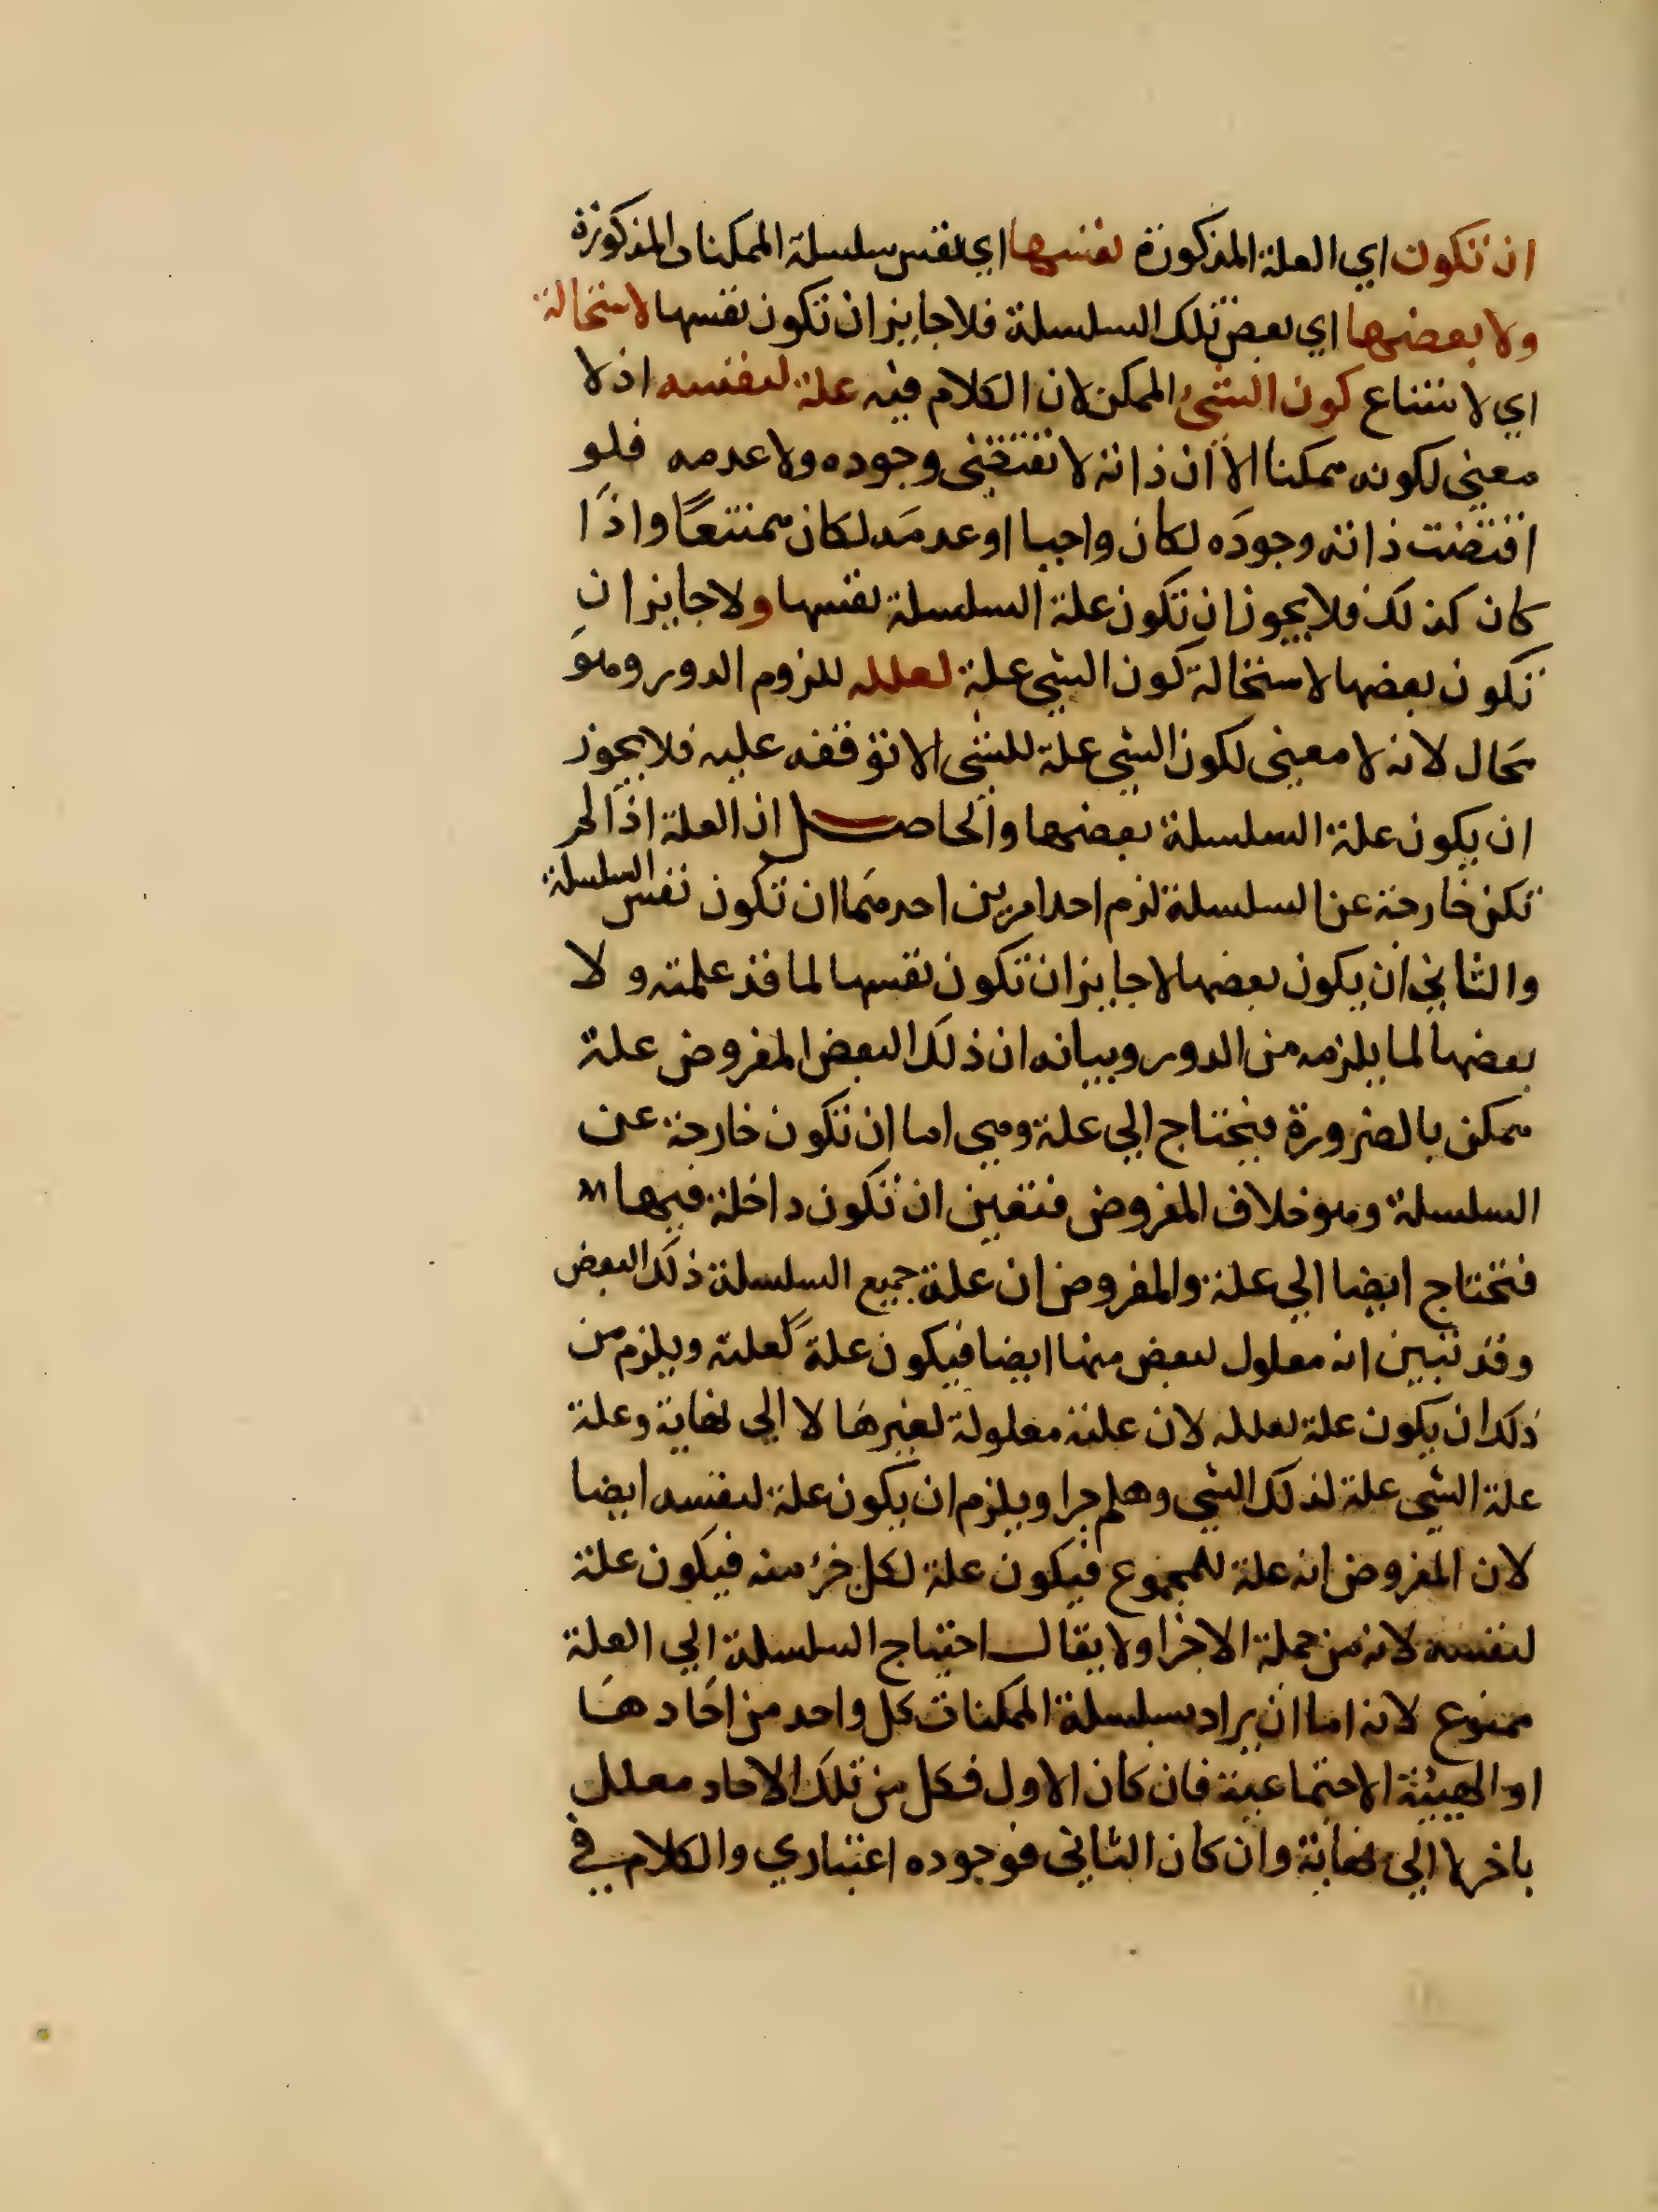 ان تكون اي العلة المذكورة نفسها اي نفس سلسلة الممكنات المذكورة
ولا بعضها اي بعض تلك السلسلة فلا جايز ان تكون نفسها لاستحالة
اي لامتناع كون الشئ الممكن لان الكلام فيه علة لنفسه اذ لا
معنى لكونه ممكنا الا ان ذاته لا تقتضى وجوده ولا عدمه فلو
اقتضت ذاته وجوده لكان واجبا او عدمه لكان ممتنعا واذا
كان كذلك فلا يجوز ان تكون علة السلسلة نفسها ولا جايز ان
تكون بعضها لاستحالة كون الشي علة لعلله للزوم الدور وهو
محال لانه لا معنى لكون الشي علة للشى الا توقفه عليه فلا يجوز
ان يكون علة السلسلة بعضها والحاصل ان العلة اذا لم
تكن خارجة عن السلسلة لزم احد امرين احدهما ان تكون نفس السلسلة
والثاني ان يكون بعضها لا جايز ان تكون نفسها لما قد علمته ولا
بعضها لما يلزمه من الدور وبيانه ان ذلك البعض المفروض علة
ممكن بالضرورة فيحتاج الي علة وهي اما ان تكون خارجة عن
السلسلة وهو خلاف المفروض فتعين ان تكون داخلة فيها
فتحتاج ايضا الي علة والمفروض ان علة جميع السلسلة ذلك البعض
وقد تبين انه معلول لبعض منها ايضا فيكون علة لعلته ويلزم من
ذلك ان يكون علة لعلله لان علته معلولة لغيرها لا الي نهاية وعلة
علة الشي علة لذلك الشي وهلم جرا ويلزم ان يكون علة لنفسه ايضا
لان المفروض انه علة للمجموع فيكون علة لكل جزء منه فيكون علة
لنفسه لانه من جملة الاجزا ولا يقال احتياج السلسلة الي العلة
ممنوع لانه اما ان يراد بسلسلة الممكنات كل واحد من احادها
او الهيئة الاجتماعية فان كان الاول فكل من تلك الاحاد معلل
باخر لا الى نهاية وان كان الثاني فوجوده اعتباري والكلام في